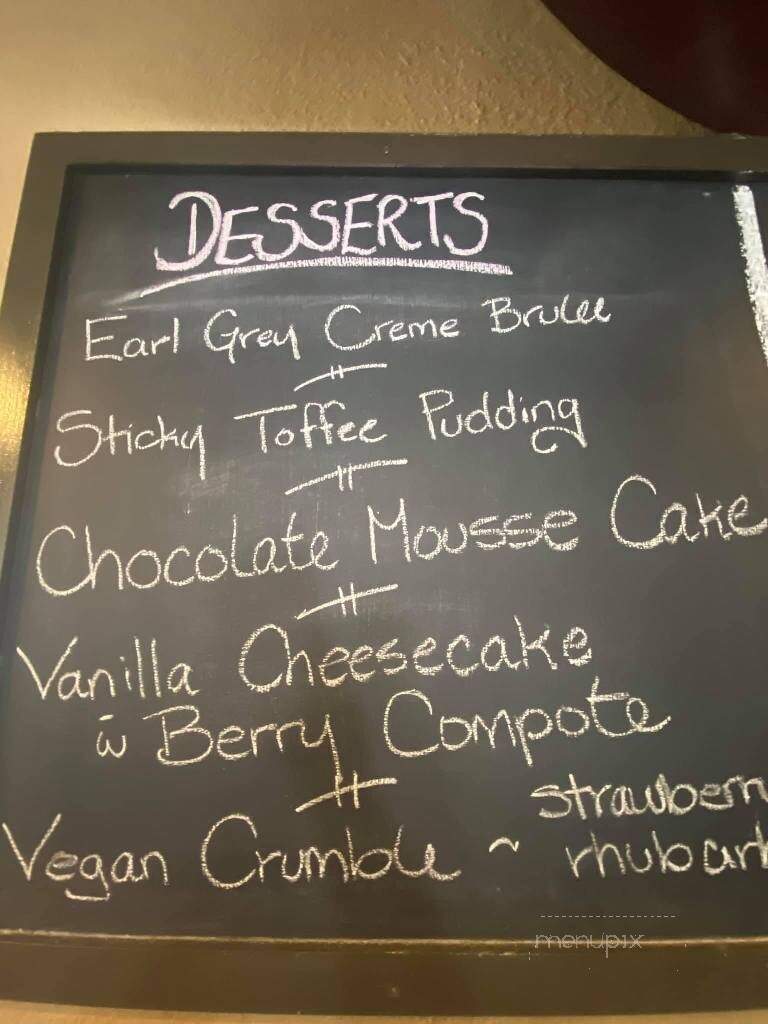 DESSERTS
Earl Grey Creme Brulee
Sticky Toffee Pudding
Chocolate Mousse Cake
Vanilla Cheesecake
w̄ Berry Compote
Vegan Crumble ~ strawberry
rhubarb
menupix